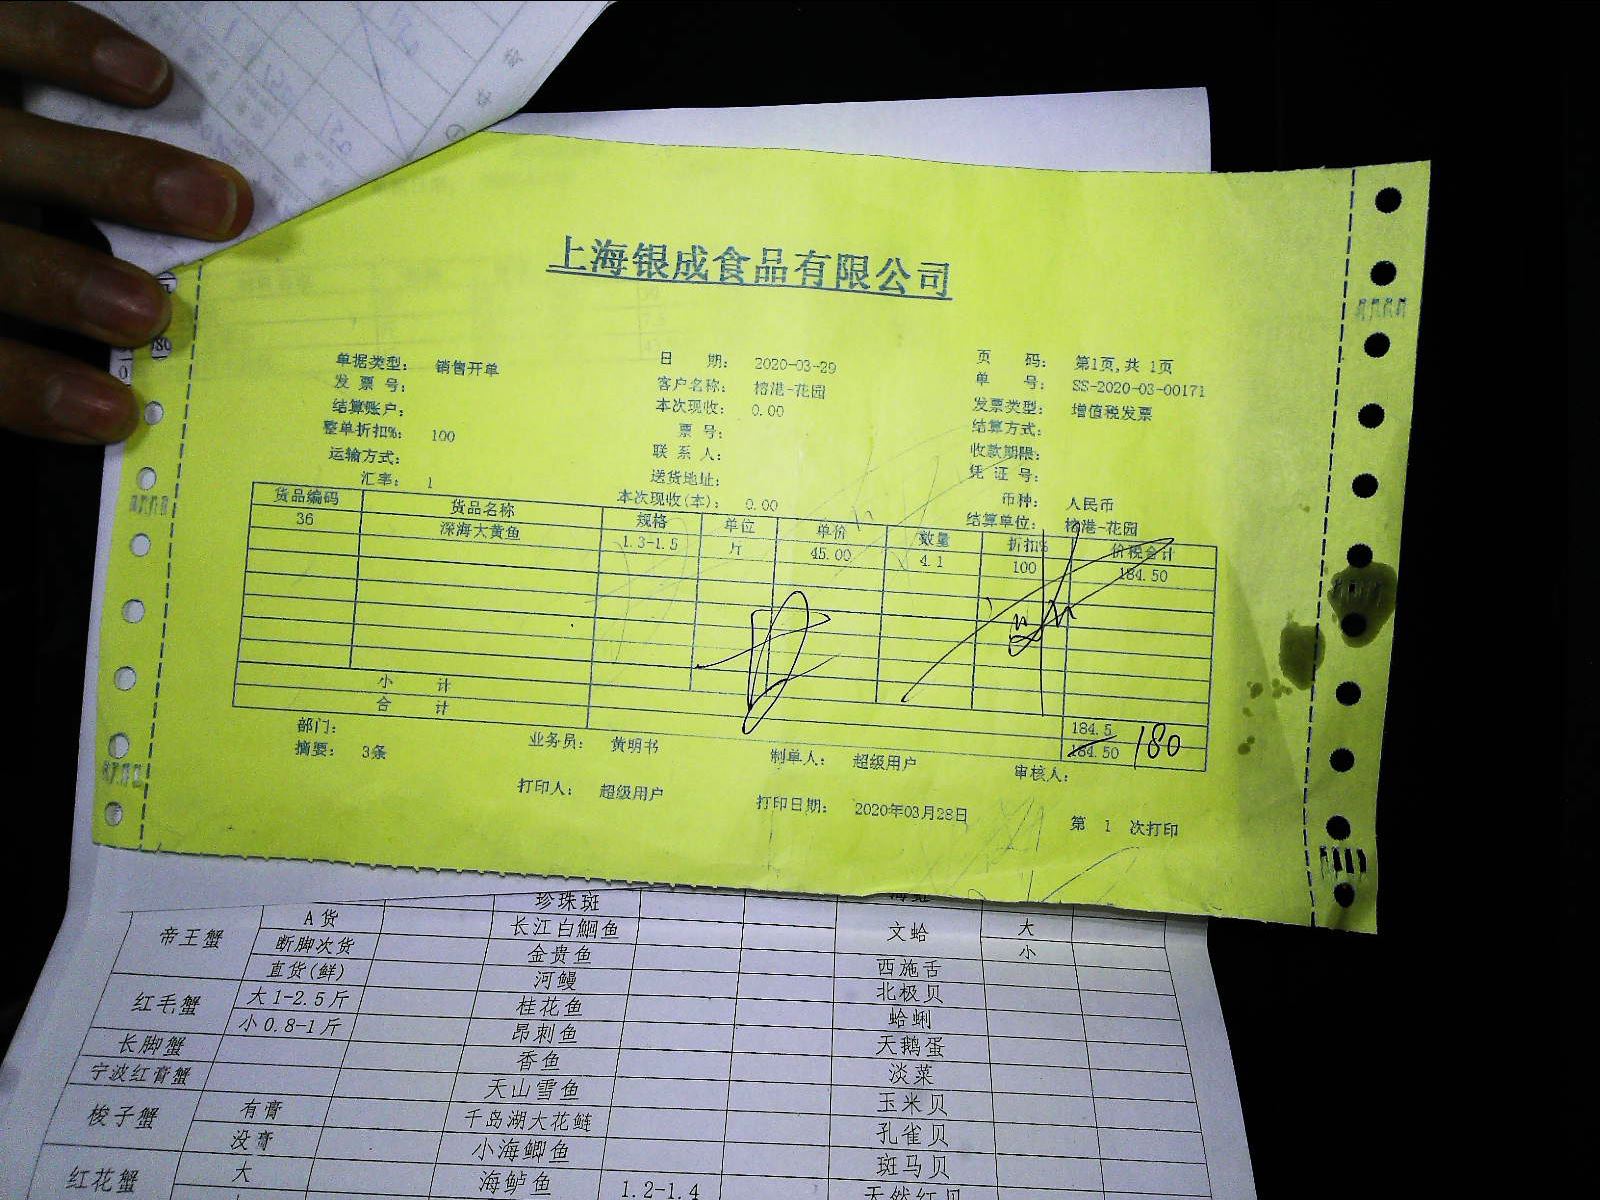 上海银成食品有限公司
单据类型: 销售开单 日 期: 2020-03-29 页 码: 第1页,共 1页
发 票 号: 客户名称: 榕港-花园 单 号: SS-2020-03-00171
结算账户: 本次现收: 0.00 发票类型: 增值税发票
整单折扣%: 100 票 号: 结算方式:
运输方式: 联 系 人: 收款期限:
汇率: 1 送货地址: 凭 证 号:
本次现收(本): 0.00 币种: 人民币
结算单位: 榕港-花园
货品编码 货品名称 规格 单位 单价 数量 折扣% 价税合计
36 深海大黄鱼 1.3-1.5 斤 45.00 4.1 100 184.50
小 计 184.5
合 计 184.50 180
部门: 业务员: 黄明书 制单人: 超级用户 审核人:
摘要: 3条
打印人: 超级用户 打印日期: 2020年03月28日 第 1 次打印
珍珠斑
帝王蟹 A货 长江白鮰鱼 文蛤 大
断脚次货 金贵鱼 小
直货(鲜) 河鳗 西施舌
红毛蟹 大1-2.5斤 桂花鱼 北极贝
小0.8-1斤 昂刺鱼 蛤蜊
长脚蟹 香鱼 天鹅蛋
宁波红膏蟹 天山雪鱼 淡菜
梭子蟹 有膏 千岛湖大花鲢 玉米贝
没膏 小海鲫鱼 孔雀贝
红花蟹 大 海鲈鱼 1.2-1.4 斑马贝
天然红贝